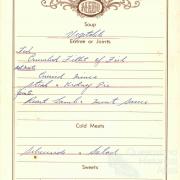 Soup
Vegetable
Entree or Joints
Fish
Crumbed Fillet of Fish
Entrée
Curried Mince
Steak & Kidney Pie
Joints
Roast Lamb & Mint Sauce
Cold Meats
& Salad
Sweets